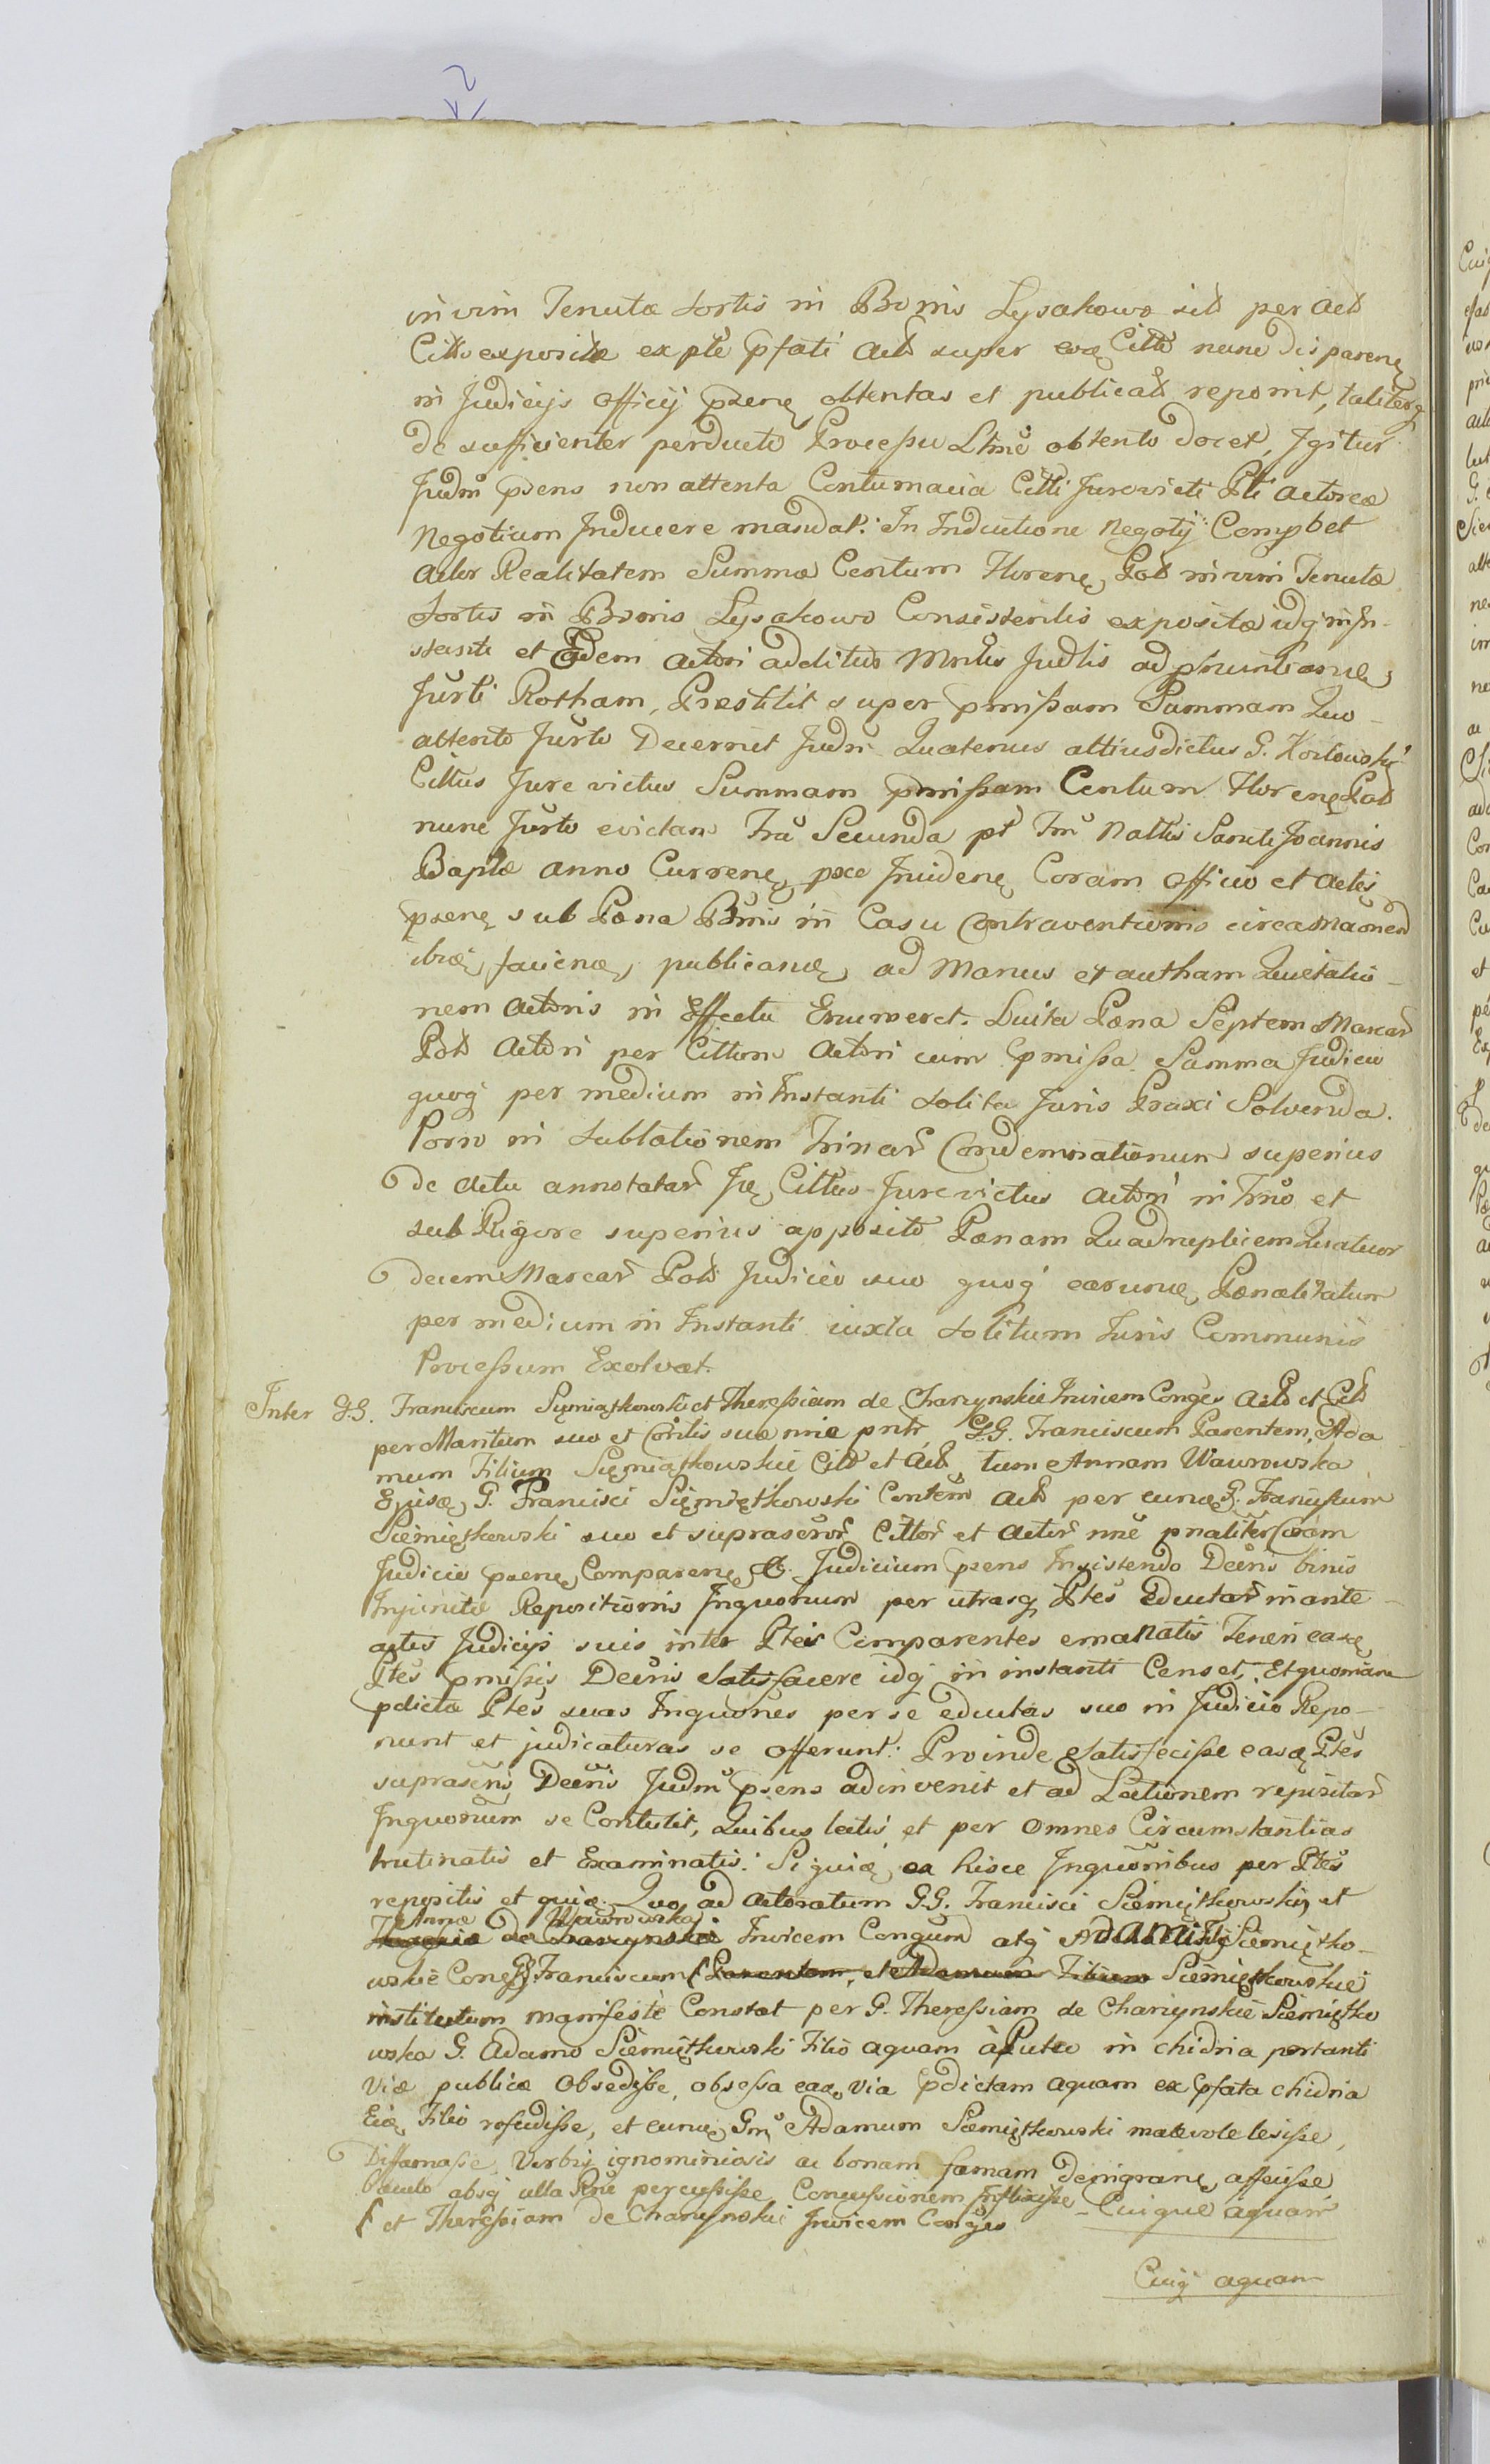 in vim Tenutæ sortis in Bonis Lysakowo sit per act
Cittō expositæ ex ptē pfati act super eoq Cittō nunc disparenę
in Judicijs Officij psenę obtentas et publicat reponit, taliterq
de sufficienter perducto Processu Ltmē obtento docet, Igitur
Judm psens non attenta Contumacia Citti Jurevicti Pti actoreæ
Negotium Inducere mandat. In Inductione Negotij Compbet
actor Realitatem Summæ Centum Florenę Pol in vim Tenutæ
Sortis in Bonis Lysakowo Consistentis expositæ idq in In-
stanti et Eidem actori additus Mntis Judlis ad pnuntianę
Jurti Rotham, Præstitit super pmissam Summam Quo
attento Jurto Decernit Judm Quatenus attius dictus G. Kozlowski
Cittus Jure victus Summam pmissam Centum Florenę Pol
nunc Jurto evictam Fra Secunda pt Fm Nattis Sancti Joannis
Baptæ anno Currenę pxe Incidenę Coram Officio et Actis
psenę sub Pœna Bnnis in Casu Contraventionis circa
ibiq faciendę, publicandę, ad Manus et autham Quietatio-
nem Actoris in Effectu Enumeret. Luita Pæna Septem Marcar
Pol Actori per Cittum Actori cum pmissa Summa Judicio
quoq per medium in Instanti solita Juris Praxi Solvenda.
Porro in sublationem Trinar Condemnationum superius
de actu annotatar Ję Cittus Jurevictus Actori in Fmo et
sub Rigore superius apposito Pænam Quadruplicem Quatuor
decem Marcar Pol Judicio suo quoq earumę Pænalitatum
per medium in Instanti iuxta solitum Juris Communis
Processum Exolvat.
Inter G.G. Franciscum Siemiątkowski et Theressiam de Charzynskie Invicem Conges Act et Cit
per Maritum suo et Conttis suæ nnie pntr, G.G. Franciscum Parentem, Ada
mum Filium Siemiątkowskie Cit et Act, tum Annam Wawrowska
Ejusę G. Francisci Siemiętkowski Contem Act per eunę G. Franciscum
Siemiętkowski suo et suprascror Cittor et Actor nne pnaliter Coram
Judicio psenę Comparenę. Judicium psens Insistendo Decris binis
Injunctæ Repositionis Inquonum per utrasq Ptes eductar in ante-
actis Judicijs suis inter Ptes Comparentes emanatis Teneri easę
Ptes pmissis Decris Satisfacere idq in instanti Censet, Et quoniam
pdictæ Ptes suas Inquones per se eductas suo in Judicio Repo-
nunt et judicaturas se Offerunt: Proinde Satisfecisse easę Ptes
suprascris Decris Judm psens adinvenit et ad Lectionem repositar
Inquonum se Contulit, Quibus lectis et per Omnes Circumstantias
trutinatis et Examinatis: Siquidę ex hisce Inquonibus per Ptes
repositis et quidę Quo ad actoratum G.G. Francisci Siemiętkowski, et
Annæ Wawrowska Invicem Congum atq Adami Siemiętko-
wskie Conę G. Franciscum Parentem, et Adamum Filium Siemiętkowskie
institutum manifeste Constat per G. Theressiam de Charzynskie Siemiętko
wska G. Adamo Siemiętkowski Filio aquam à Puteo in chidria portanti
Viæ publicæ Obsedisse, obsessa eadę via pdictam aquam ex pfata chidria
Eidę Filio refudisse, et eunę Gm Adamum Siemiętkowski malevole lesisse,
Diffamasse, Verbis ignominiosis ac bonam famam denigranę affecisse,
Baculo absq ulla Rne percussisse Concussionem Inflixisse Cuique aquam
et Theressiam de Charzynskie Invicem Conges
Cuiq aquam